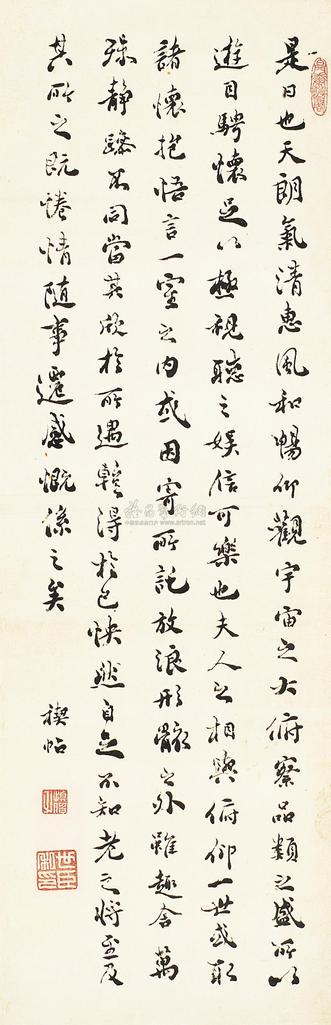 是日也天朗氣清惠風和暢仰觀宇宙之大俯察品類之盛所以
遊目騁懷足以極視聽之娛信可樂也夫人之相與俯仰一世或取
諸懷抱悟言一室之內或因寄所託放浪形骸之外雖趣舍萬
殊靜躁不同當其欣於所遇輒得於己快然自足不知老之將至及
其所之既惓情隨事遷感慨係之矣
禊帖
世臣
www.artron.net